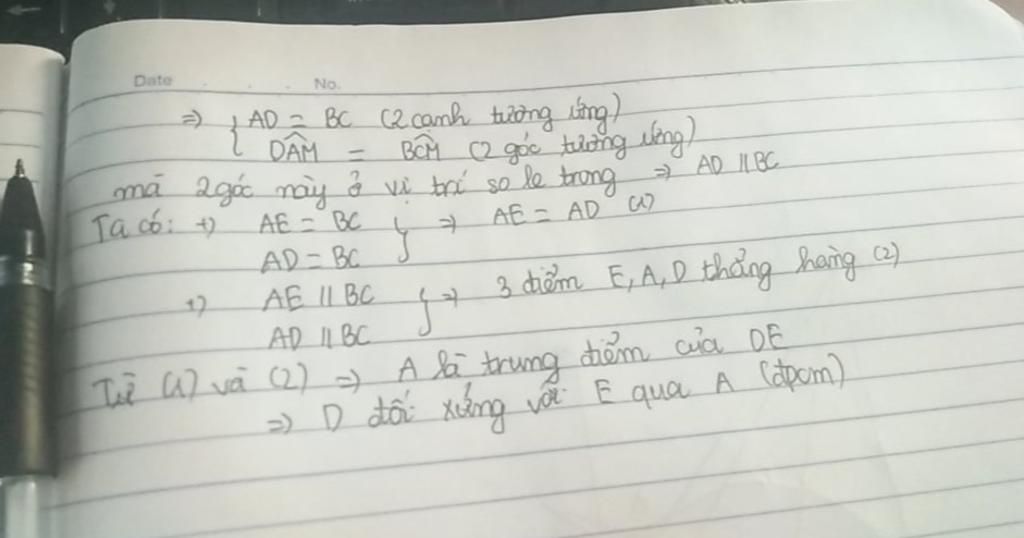 Date No.
⇒ { AD = BC (2 cạnh tương ứng)
DÂM = BĈM (2 góc tương ứng)
mà 2 góc này ở vị trí so le trong ⇒ AD // BC
Ta có: +) AE = BC } ⇒ AE = AD (1)
AD = BC
+) AE // BC } ⇒ 3 điểm E, A, D thẳng hàng (2)
AD // BC
Từ (1) và (2) ⇒ A là trung điểm của DE
⇒ D đối xứng với E qua A (đpcm)